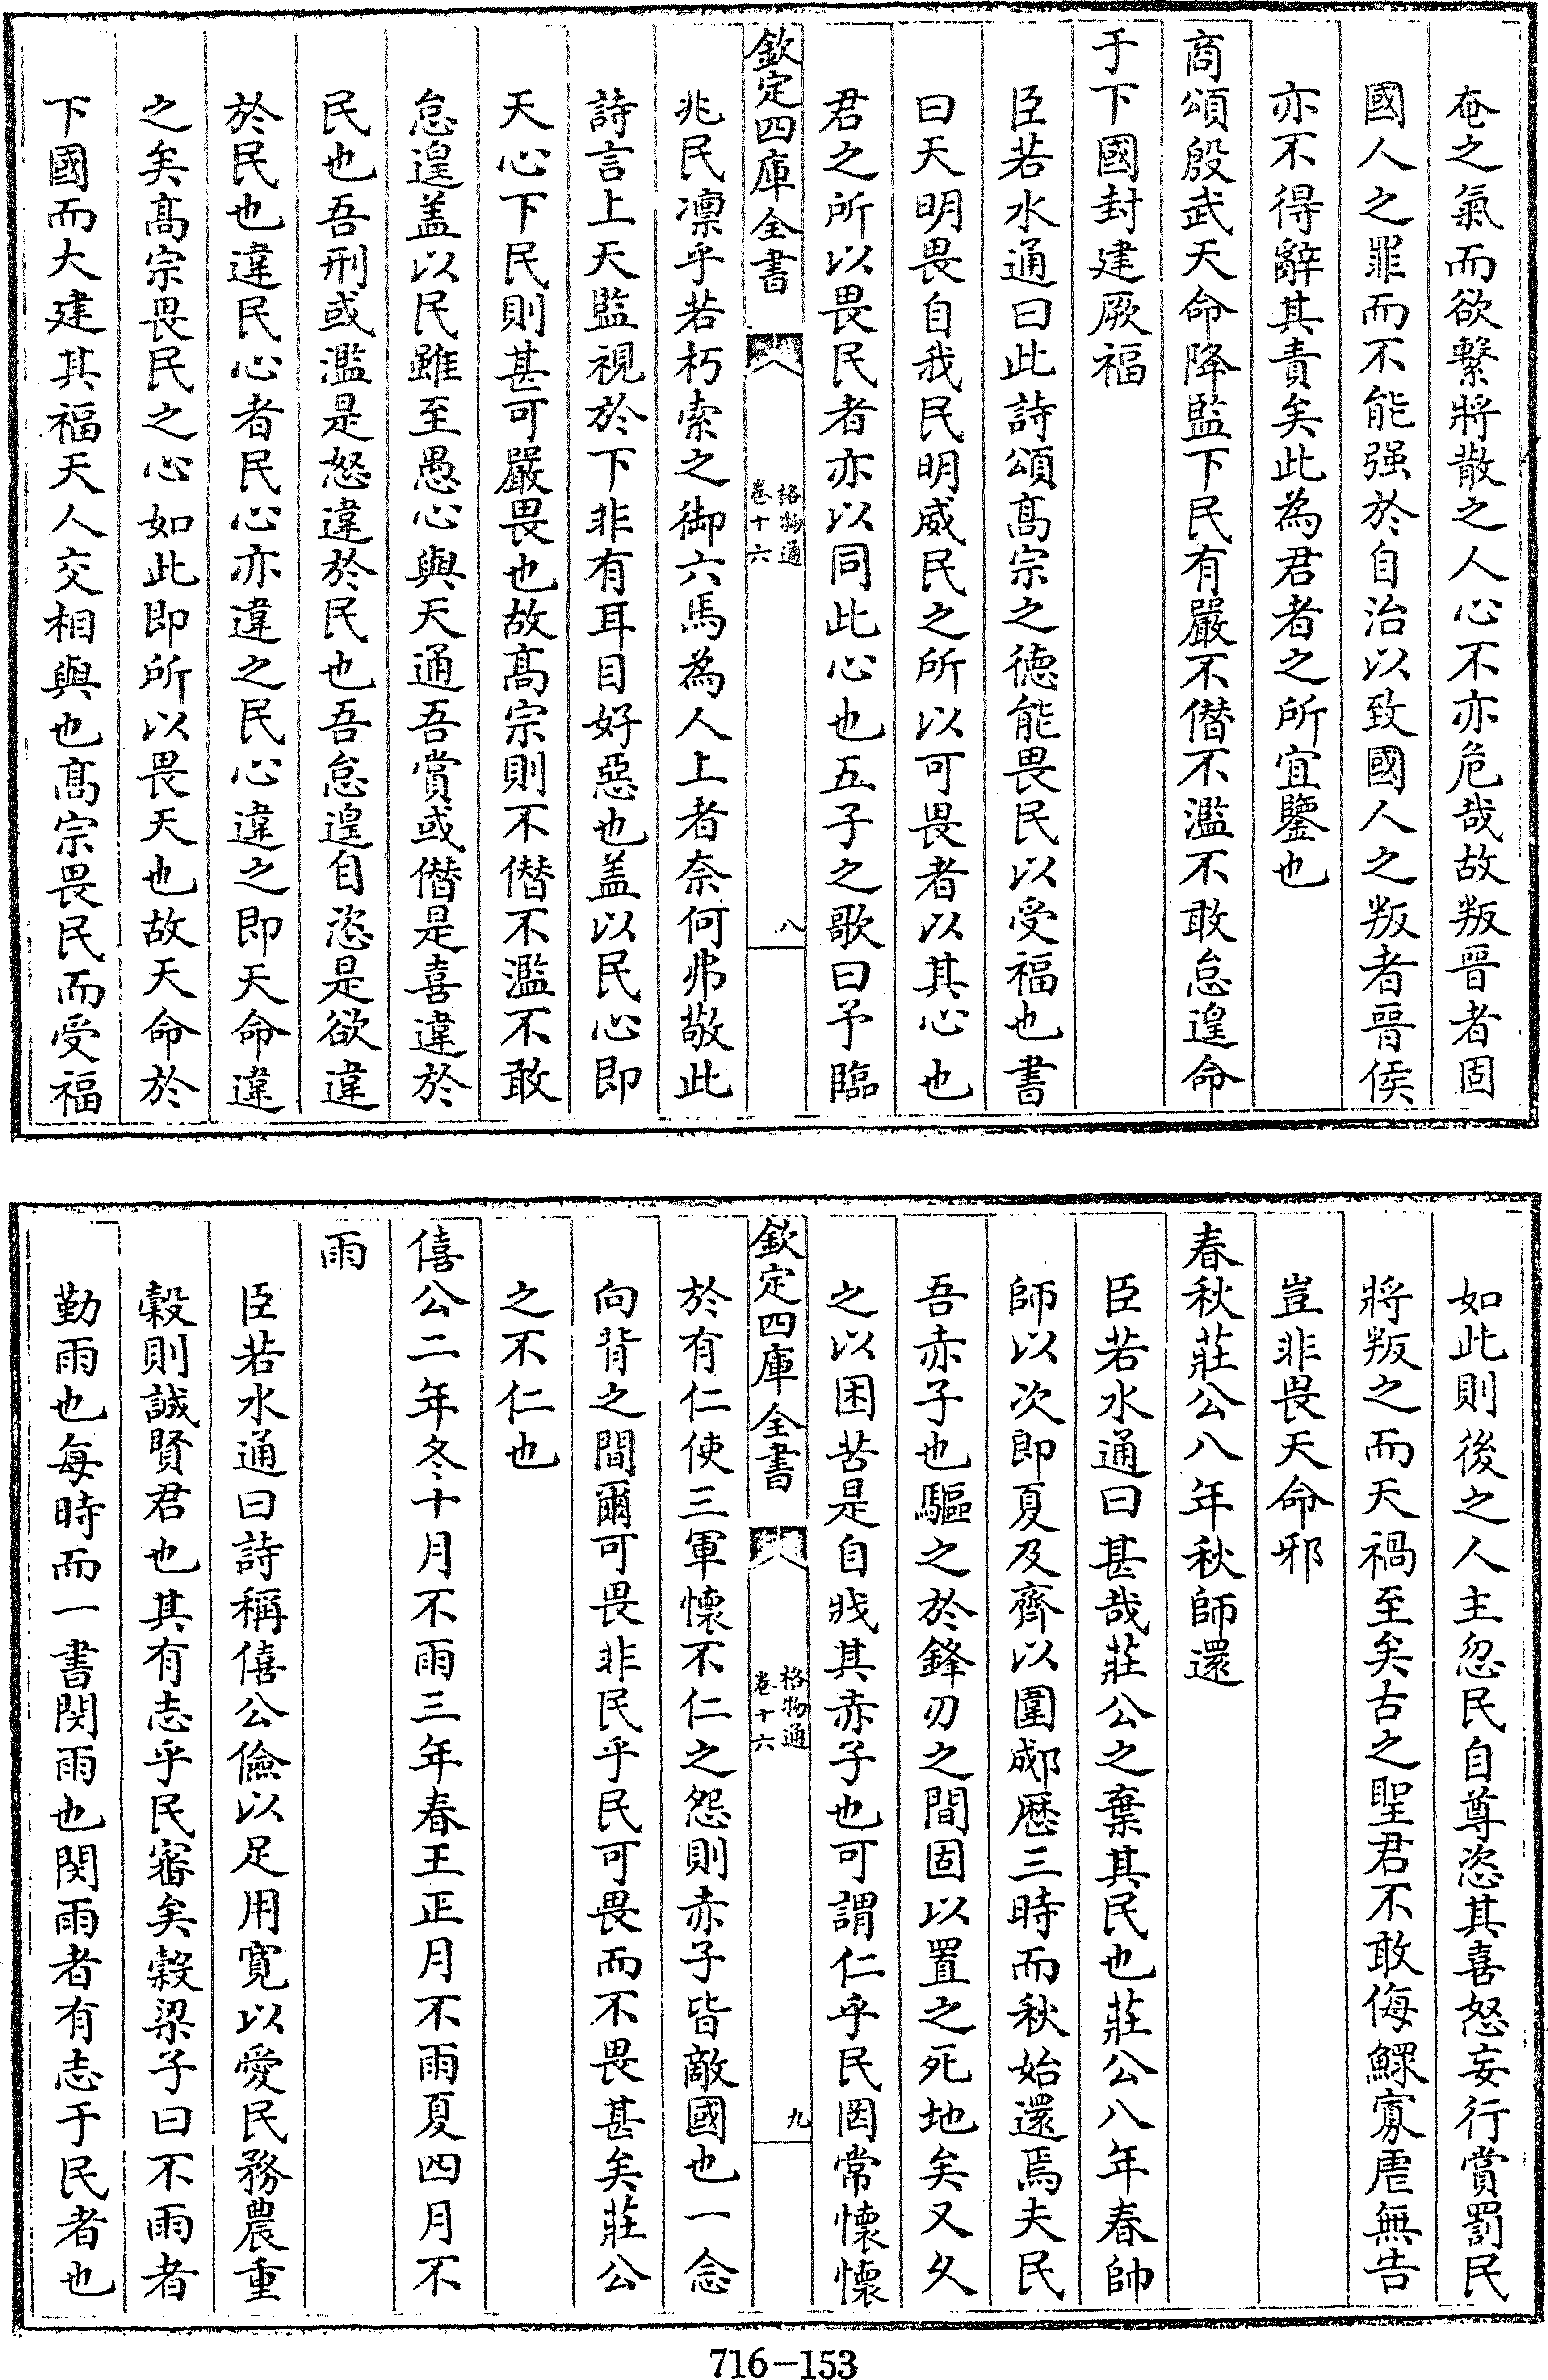 奄之氣而欲繫將散之人心不亦危哉故叛晉者固
國人之罪而不能强於自治以致國人之叛者晉侯
亦不得辭其責矣此為君者之所宜鑒也
商頌殷武天命降監下民有嚴不僭不濫不敢怠遑命
于下國封建厥福
臣若水通曰此詩頌髙宗之德能畏民以受福也書
曰天明畏自我民明威民之所以可畏者以其心也
君之所以畏民者亦以同此心也五子之歌曰予臨
欽定四庫全書
格物通
卷十六
八
兆民凛乎若朽索之御六馬為人上者奈何弗敬此
詩言上天監視於下非有耳目好惡也盖以民心即
天心下民則甚可嚴畏也故髙宗則不僭不濫不敢
怠遑盖以民雖至愚心與天通吾賞或僭是喜違於
民也吾刑或濫是怒違於民也吾怠遑自恣是欲違
於民也違民心者民心亦違之民心違之即天命違
之矣髙宗畏民之心如此即所以畏天也故天命於
下國而大建其福天人交相與也髙宗畏民而受福
如此則後之人主忽民自尊恣其喜怒妄行賞罰民
將叛之而天禍至矣古之聖君不敢侮鰥寡虐無告
豈非畏天命邪
春秋莊公八年秋師還
臣若水通曰甚哉莊公之棄其民也莊公八年春帥
師以次郎夏及齊以圍郕歷三時而秋始還焉夫民
吾赤子也驅之於鋒刃之間固以置之死地矣又久
之以困苦是自戕其赤子也可謂仁乎民罔常懷懷
欽定四庫全書
格物通
卷十六
九
於有仁使三軍懷不仁之怨則赤子皆敵國也一念
向背之間爾可畏非民乎民可畏而不畏甚矣莊公
之不仁也
僖公二年冬十月不雨三年春王正月不雨夏四月不
雨
臣若水通曰詩稱僖公儉以足用寛以愛民務農重
榖則誠賢君也其有志乎民審矣榖梁子曰不雨者
勤雨也每時而一書閔雨也閔雨者有志于民者也
716-153